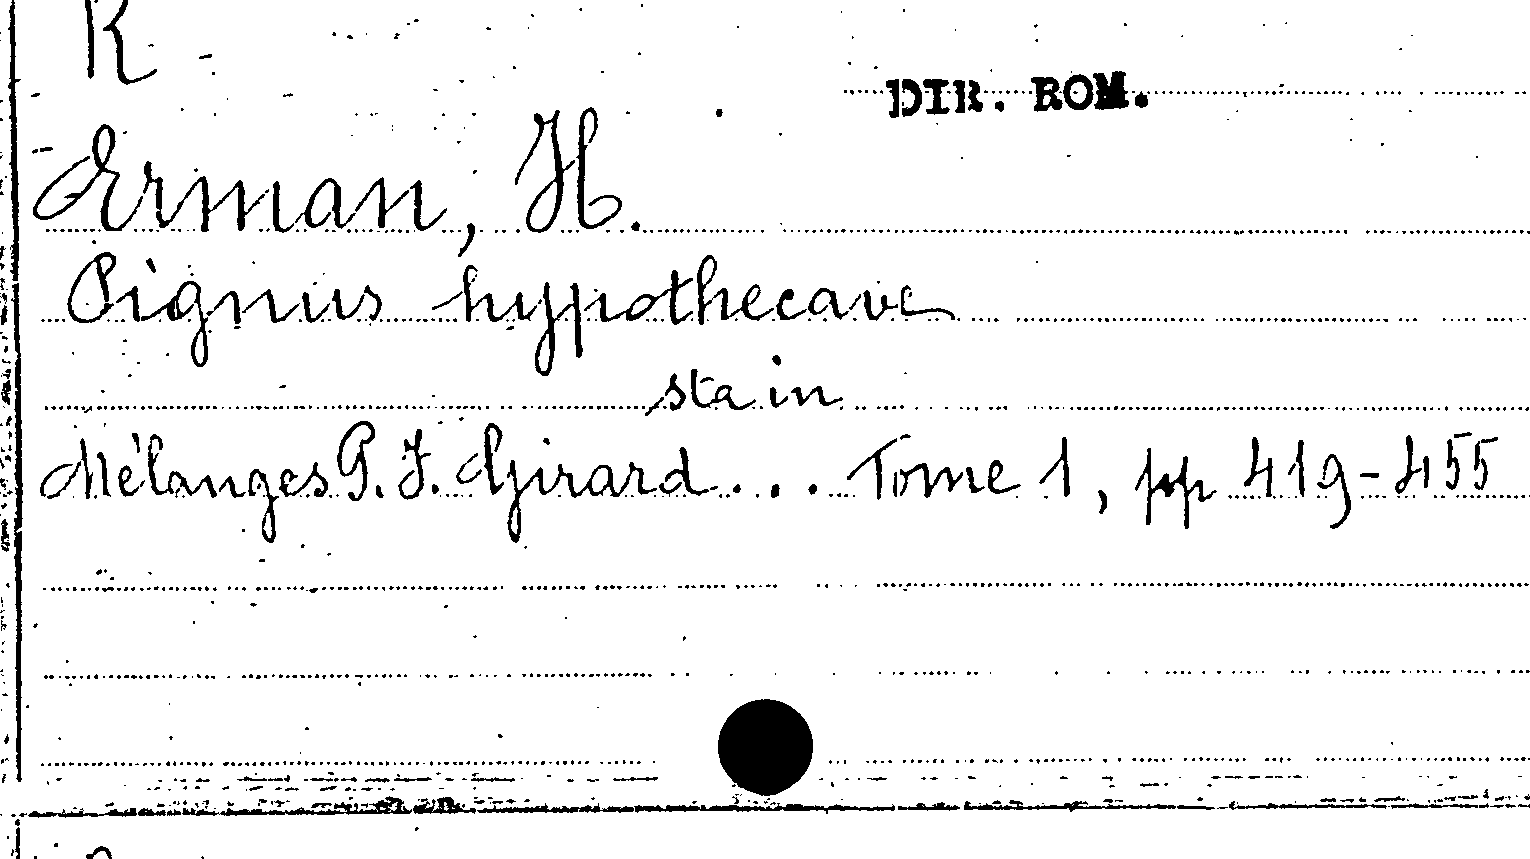 R
DIR. ROM.
Erman, H.
Pignus hypothecave
sta in
Mélanges P. F. Girard... Tome 1, pp 419-455